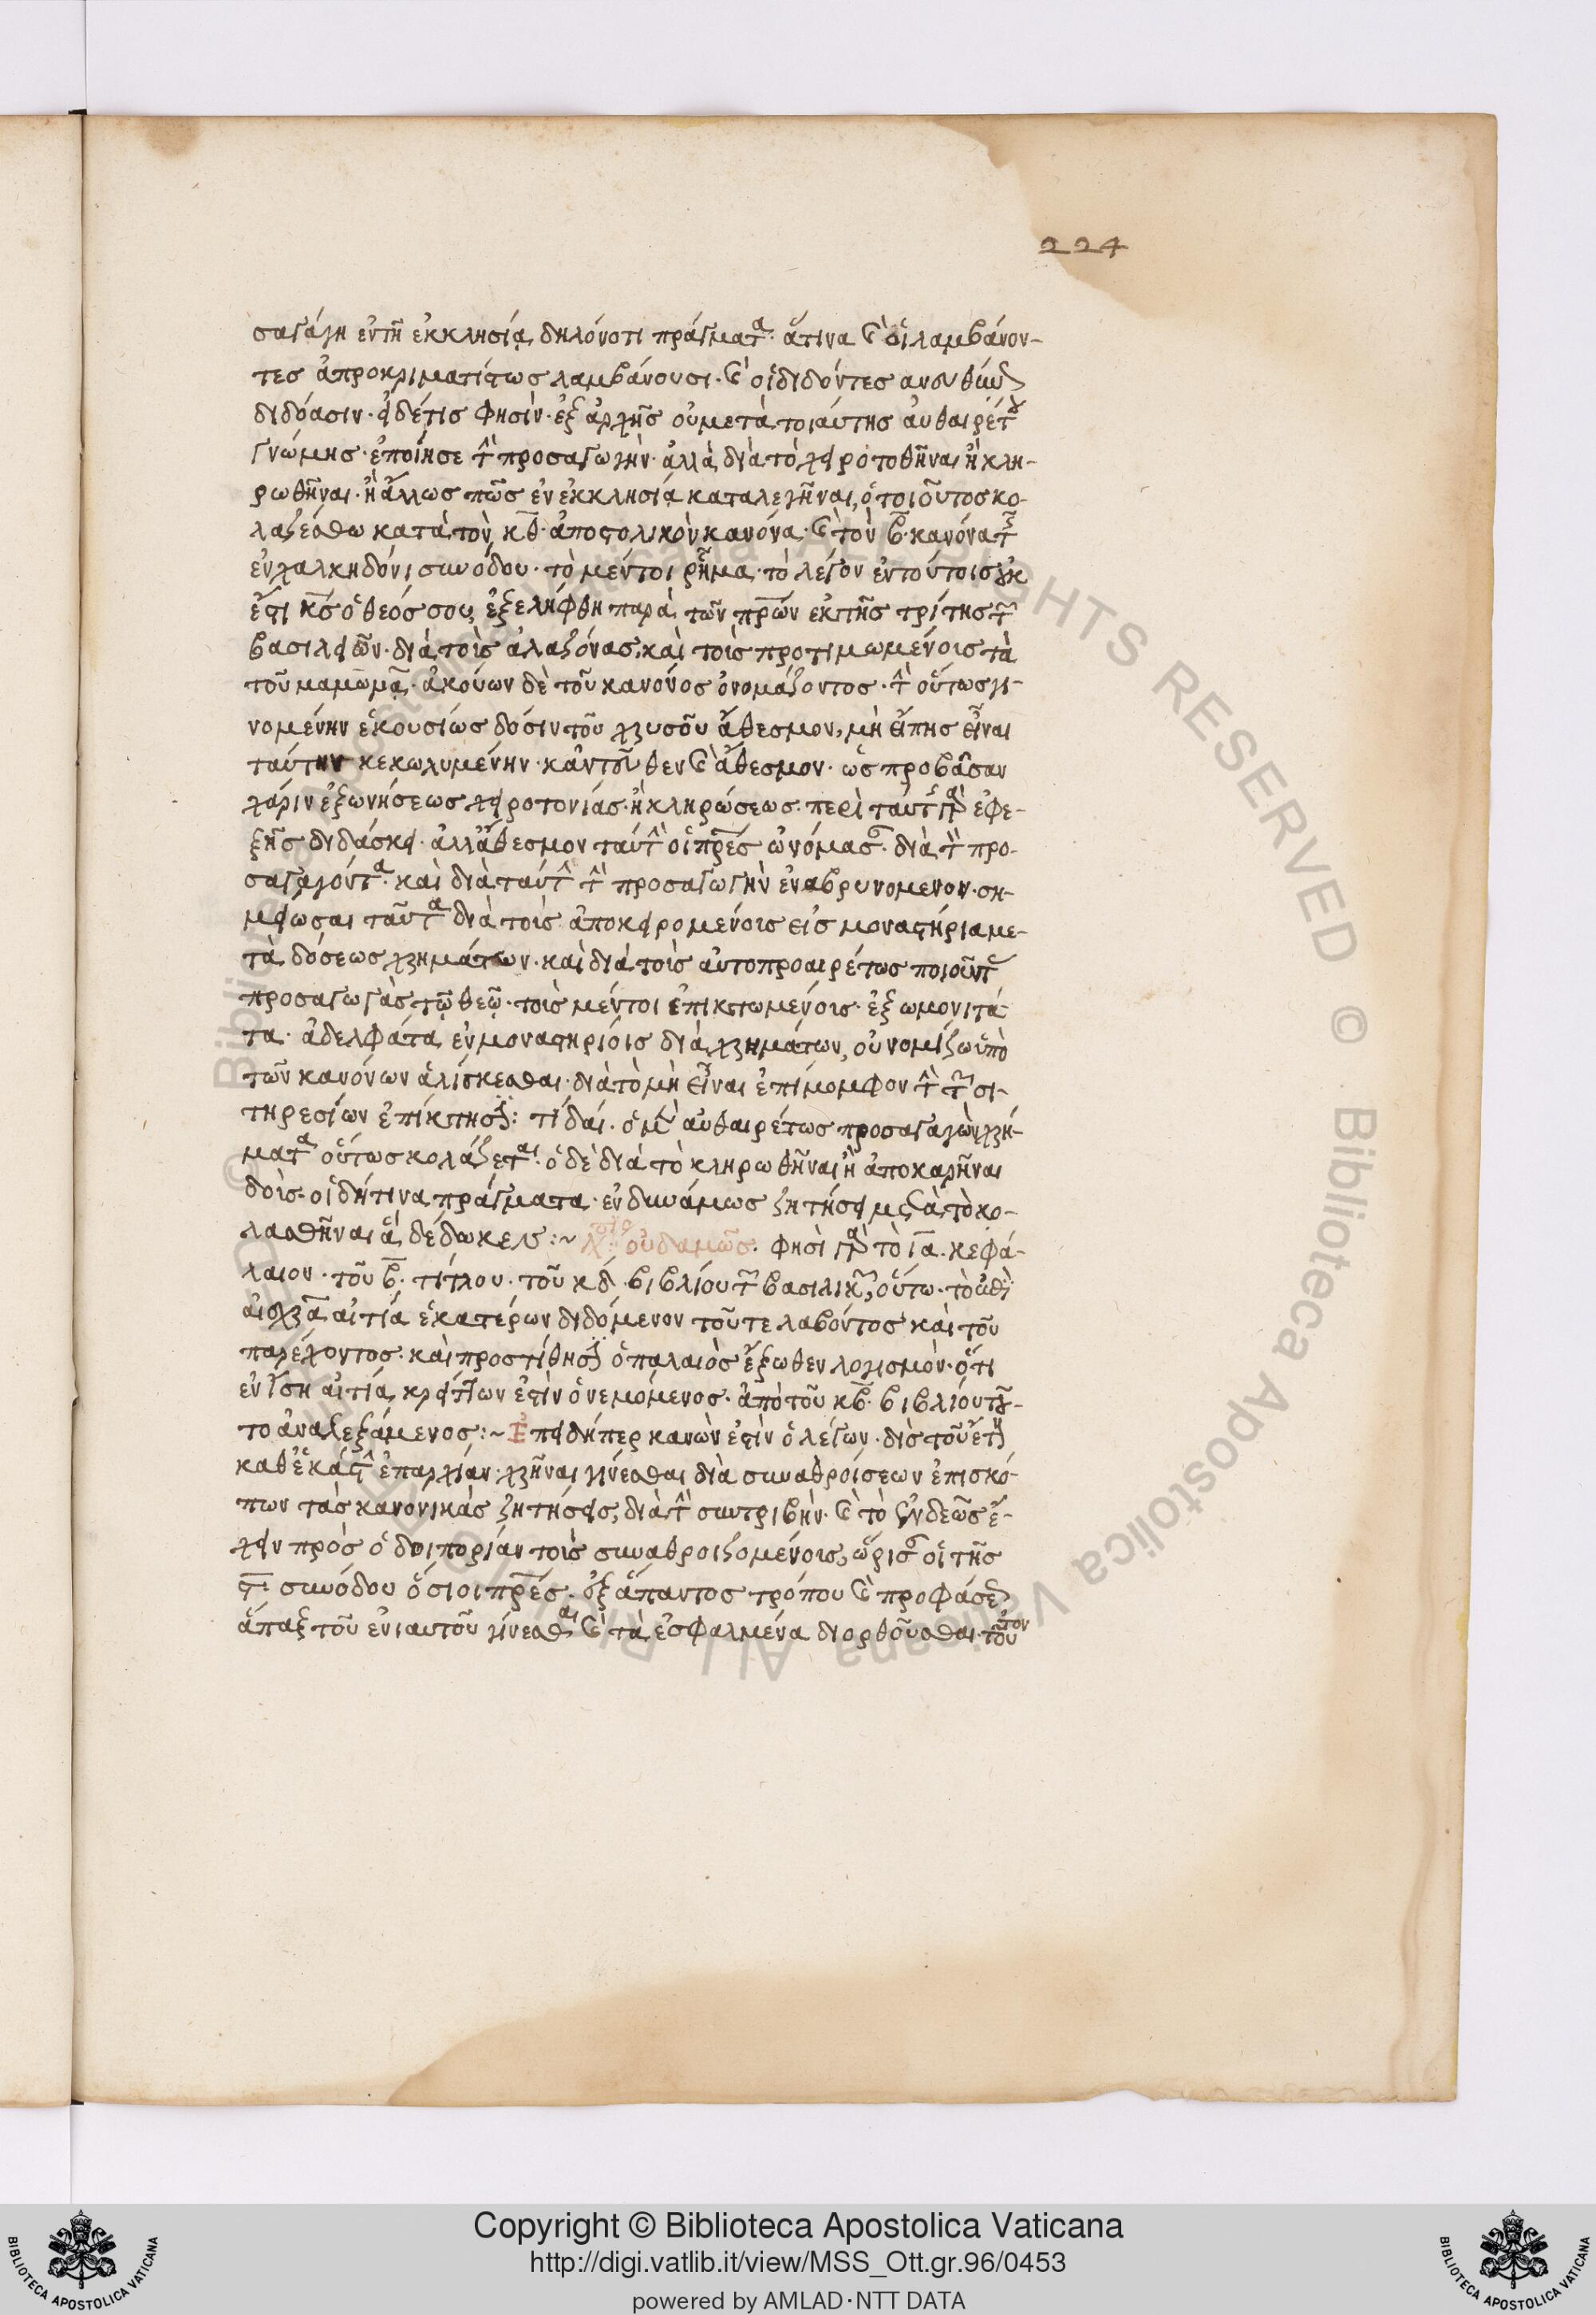 224
σαγάγη ἐν τῆ ἐκκλησία, δηλονότι πράγματα. ἅτινα καὶ οἱ λαμβάνον-
τες ἀπροκριματίστως λαμβάνουσι. καὶ οἱ διδόντες
διδόασιν. εἰ δέ τις φησὶν. ἐξ ἀρχῆς οὐ μετὰ τοιαύτης αὐθαιρέτου
γνώμης. ἐποίησε τὴν προσαγωγὴν. ἀλλὰ διὰ τὸ χειροτονηθῆναι ἢ κλη-
ρωθῆναι. ἢ ἄλλως πῶς ἐν ἐκκλησία καταλεγῆναι, ὁ τοιοῦτος κο-
λαζέσθω κατὰ τὸν κθ. ἀποστολικὸν κανόνα. καὶ τὸν β. κανόνα τῆς
ἐν χαλκηδόνι συνόδου. τὸ μέντοι ῥῆμα. τὸ λέγον ἐν τούτοις οὐκ
ἔστι κς ὁ θεός σου, ἐξελήφθη παρὰ τῶν πρων ἐκ τῆς τρίτης τῶν
βασιλειῶν. διὰ τοὺς ἀλαζόνας, καὶ τοὺς προτιμωμένους τὰ
τοῦ μαμωμᾶ. ἀκούων δὲ τοῦ κανόνος ὀνομάζοντος. τὴν οὕτως γι-
νομένην ἑκουσίως δόσιν τοῦ χρυσοῦ ἄθεσμον, μὴ εἴπης εἶναι
ταύτην κεκωλυμένην. κἀντεῦθεν καὶ ἄθεσμον. ὡς προβᾶσαν
χάριν ἐξωνήσεως χειροτονίας. ἢ κληρώσεως. περὶ ταύτης γὰρ ἐφε-
ξῆς διδάσκει. ἀλλ' ἄθεσμον ταύτην οἱ πρες ὠνόμασαν. διὰ τὸν προ-
σαγαγόντα. καὶ διὰ ταύτην τὴν προσαγωγὴν ἐναβρυνόμενον. ση-
μείωσαι ταῦτα διὰ τοὺς ἀποκειρομένους εἰς μοναστήρια με-
τὰ δόσεως χρημάτων. καὶ διὰ τοὺς αὐτοπροαιρέτως ποιοῦντας
προσαγωγὰς τῶ θεῶ. τοὺς μέντοι ἐπικτωμένους. ἐξωμονιτά-
τα. ἀδελφάτα ἐν μοναστηρίοις διὰ χρημάτων, οὐ νομίζω ὑπὸ
τῶν κανόνων ἁλίσκεσθαι. διὰ τὸ μὴ εἶναι ἐπίμομφον τὴν τῶν σι-
τηρεσίων ἐπίκτησιν: τί δαί. ὁ μὲν αὐθαιρέτως προσαγαγὼν χρή-
ματα οὕτως κολάζεται. ὁ δὲ διὰ τὸ κληρωθῆναι ἢ ἀποκαρῆναι
δοὺς οἱδήτινα πράγματα. ἐνδυνάμως ζητήσει μετὰ τὸ κο-
λασθῆναι ἃ δέδωκεν :~ λύσις οὐδαμῶς. φησὶ γὰρ τὸ ια. κεφά-
λαιον. τοῦ β. τίτλου. τοῦ κδ. βιβλίου τῶν βασιλικῶν, οὕτω. τὸ ἐπὶ
αἰσχρᾶ αἰτία ἑκατέρων διδόμενον τοῦ τε λαβόντος καὶ τοῦ
παρέχοντος. καὶ προστίθησιν ὁ παλαιὸς ἔξωθεν λογισμὸν. ὅτι
ἐν ἴση αἰτία κρείττων ἐστὶν ὁ νεμόμενος. ἀπὸ τοῦ κβ. βιβλίου τοῦ-
το ἀναλεξάμενος :~ Ἐπειδήπερ κανὼν ἐστὶν ὁ λέγων. δὶς τοῦ ἔτους
καθ' ἑκάστην ἐπαρχίαν. χρῆναι γίνεσθαι διὰ συναθροίσεων ἐπισκό-
πων τὰς κανονικὰς ζητήσεις, διὰ τὴν συντριβὴν. καὶ τὸ ἐνδεῶς ἔ-
χειν πρὸς ὁδοιπορίαν τοὺς συναθροιζομένους, ὥρισαν οἱ τῆς
ϛ. συνόδου ὅσιοι πρες. ἐξ ἅπαντος τρόπου καὶ προφάσεως
ἅπαξ τοῦ ἐνιαυτοῦ γίνεσθαι καὶ τὰ ἐσφαλμένα διορθοῦσθαι. τοῦτον
Copyright © Biblioteca Apostolica Vaticana
http://digi.vatlib.it/view/MSS_Ott.gr.96/0453
powered by AMLAD·NTT DATA